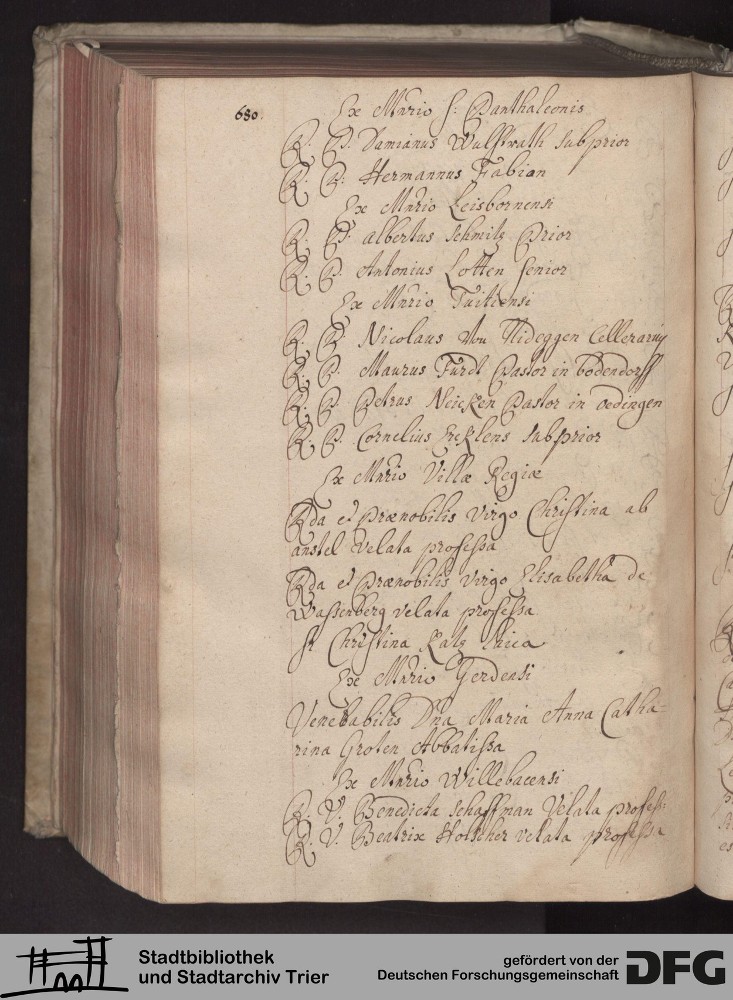 680.
Ex Mnrio S: Panthaleonis
R. P. Damianus Wulffrath Subprior
R. P. Hermannus Fabian
Ex Mnrio Leisbornensi
R. P. Albertus Schmitz Prior
R. P. Antonius Lotten Senior
Ex Mnrio Tuitiensi
R. P. Nicolaus Von Nideggen Cellerarius
R. P. Maurus Fürdt Pastor in Bodendorff
R. P. Petrus Neicken Pastor in Oedingen
R. P. Cornelius Subprior
Ex Mnrio Villæ Regiæ
Rda et Prænobilis Virgo Christina ab
anstel Velata professa
Rda et Prænobilis Virgo Elisabetha de
Wassenberg velata professa
Sr Christina Katz laica
Ex Mnrio Gerdensi
Venerabilis Dna Maria Anna Catha=
rina Groten Abbatissa
Ex Mnrio Willebacensi
R. V. Benedicta Schaffman Velata profess:
R. V. Beatrix Holscher velata professa
Stadtbibliothek
und Stadtarchiv Trier
gefördert von der
Deutschen Forschungsgemeinschaft
DFG